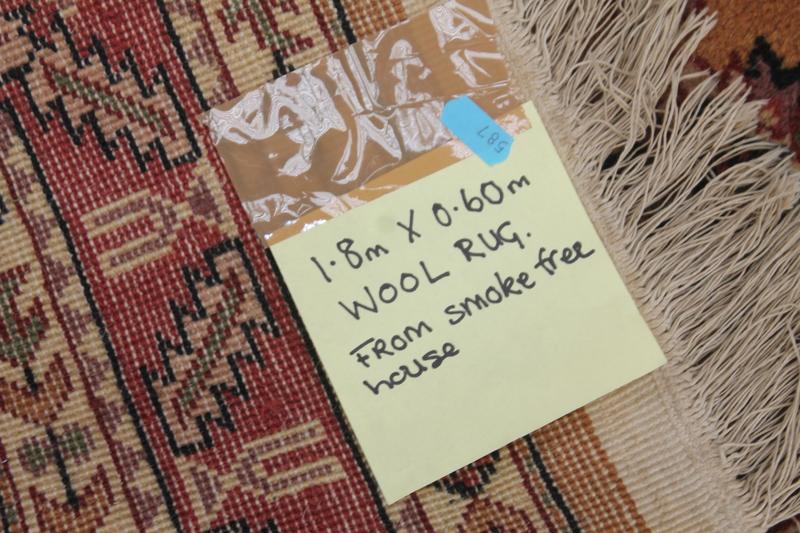 587
1.8m X 0.60m
WOOL RUG.
FROM smoke free
house